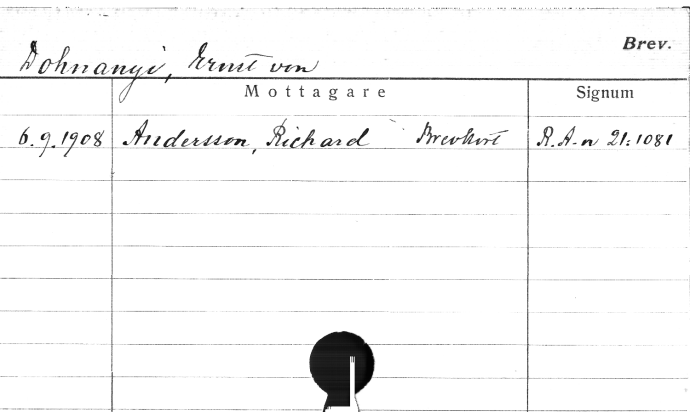 Brev.
Dohnanyi, Ernst von
Mottagare Signum
6.9.1908 Andersson, Richard Brevkort R.A-n 21:1081